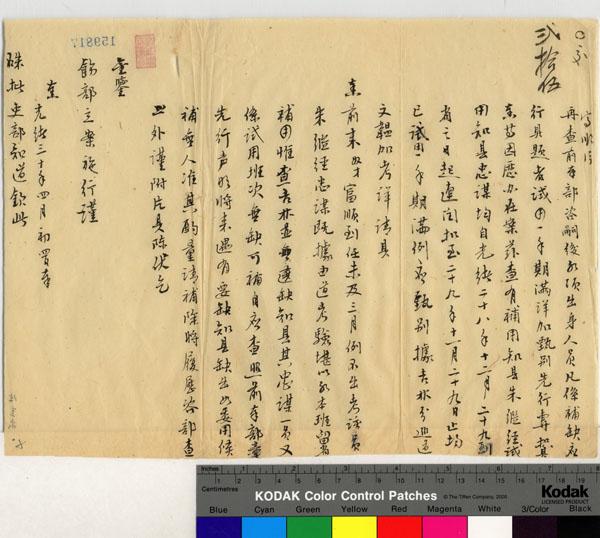 貳拾伍
富順片
再查前奉部咨嗣後各項出身人員凡係補缺應
行具題者試用一年期滿詳加甄別先行專摺具
奏等因歷辦在案茲查有補用知縣朱繼經試
用知縣忠謀均自光緒二十八年十二月二十九到
省之日起連閏扣至二十九年十一月二十九日止均
已試用一年期滿例應甄別據吉林分巡道
文韞加考詳請具
奏前來奴才富順到任未及三月例不出考該員
朱繼經忠謀既據由道考驗堪以各本班留省
補用惟查吉林並無選缺知縣其忠謀一員又
係試用班次無缺可補自應查照前奉部章
先行聲明將來遇有要缺知縣缺出如委用候
補無人准其酌量請補除將履歷咨部查
照外謹附片具陳伏乞
聖鑒
飭部立案施行謹
奏
光緒三十年四月初四日奉
硃批吏部知道欽此
159817
Inches
Centimetres
1 2 3 4 5 6 7 8 9 10 11 12 13 14 15 16 17 18 19
KODAK Color Control Patches
© The Tiffen Company, 2000
Kodak
LICENSED PRODUCT
Blue Cyan Green Yellow Red Magenta White 3/Color Black